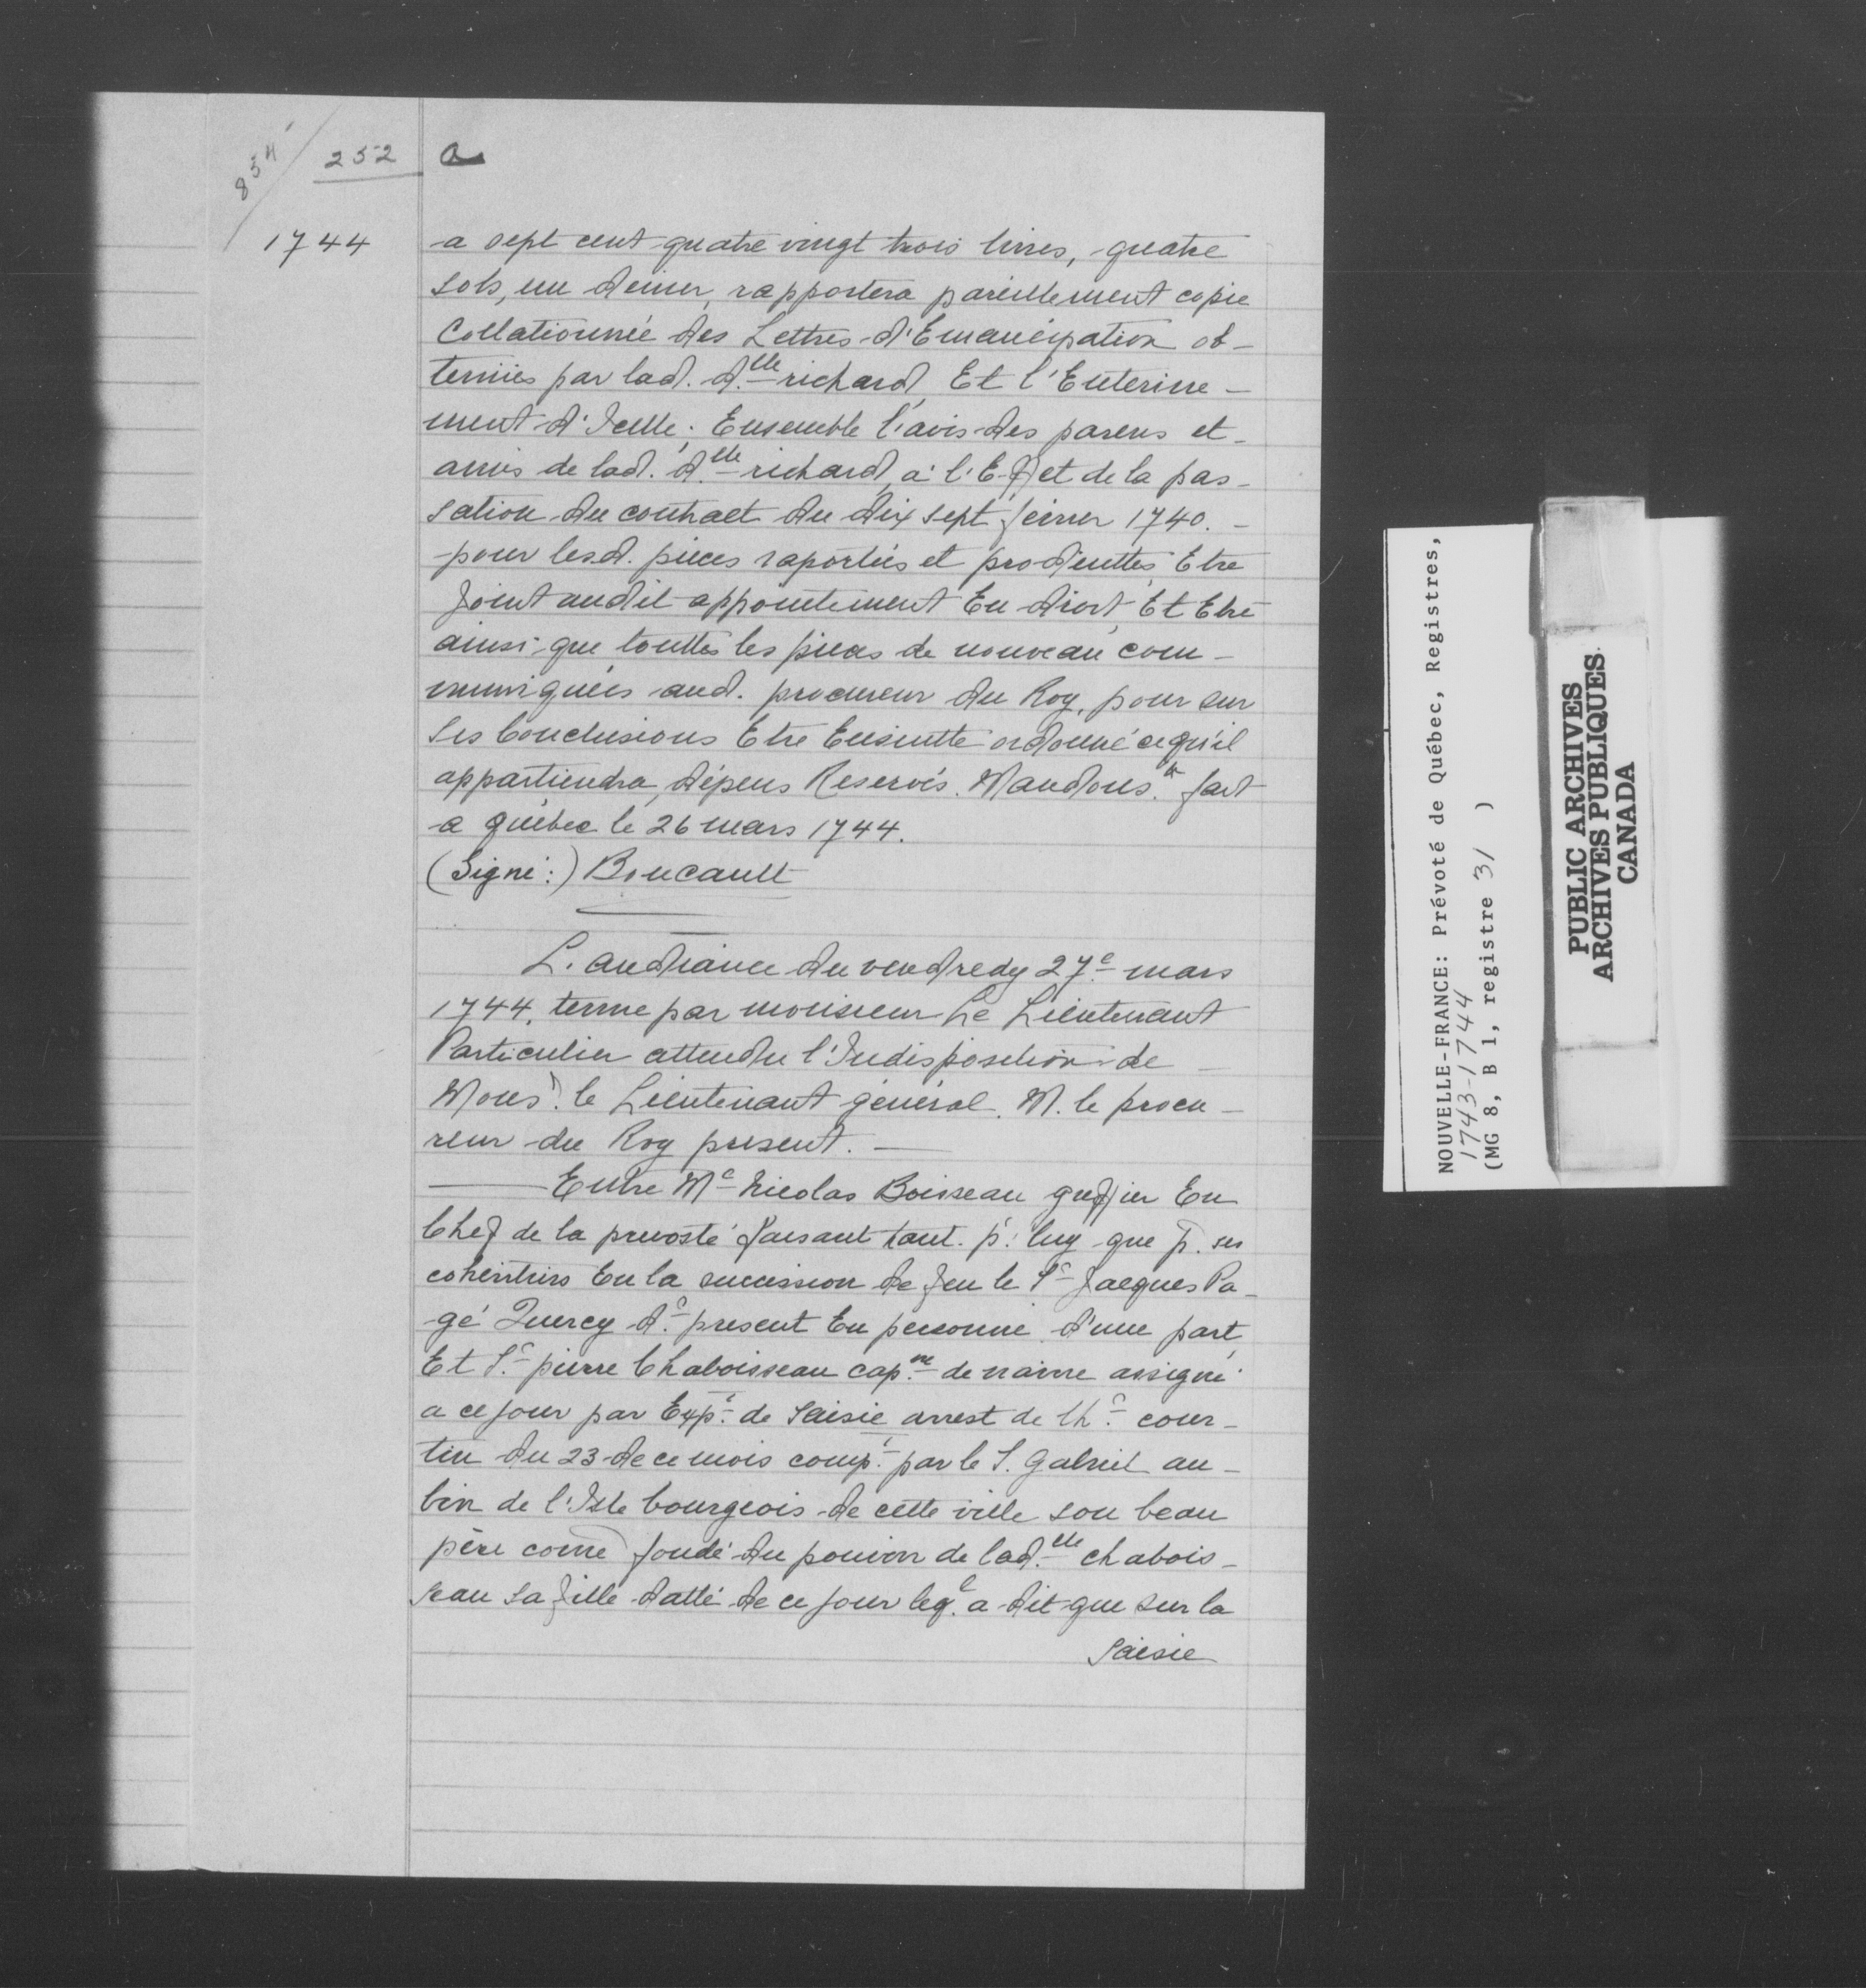 834
252 a
1744
a sept cent quatre vingt trois livres, quatre
sols, un denier, rapportera pareillement copie
Collationnée des Lettres d'Emancipation ob-
tenües par lad. d.lle richard, Et l'Enterine-
ment d'Icelle; Ensemble l'avis des parens et
amis de lad. d.lle richard, a l'Effet de la pas-
sation du contract du dix sept fevrier 1740.
pour lesd. pieces raportées et produittes Etre
Joint audit appointement En droit, Et Etre
ainsi que touttes les pieces de nouveau com-
muniquées aud. procureur du Roy, pour sur
Ses Conclusions Etre Ensuitte ordonné ce qu'il
appartiendra, dépens Reservés. Mandons. & fait
a québec le 26 mars 1744.
(Signé:) Boucault
L'audiance du vendredy 27e mars
1744, tenue par monsieur Le Lieutenant
Particulier attendu l'Indisposition de
Monsr. le Lieutenant général. M. le procu-
reur du Roy present.
Entre Me Nicolas Boisseau greffier En
Chef de la prevosté faisant tant p. luy que p. ses
cohéritiers En la succession de feu le Sr Jacques Pa-
gé Quercy dr. present En personne d'une part,
Et Sr. pierre Chaboisseau cap.ne de navire assigné
a ce jour par Expt. de Saisie arrest de thr. cour-
tin du 23 de ce mois compt. par le S. Gabriel au-
bin de l'Isle bourgeois de cette ville son beau
père come fondé du pouvoir de lad.lle chabois-
seau sa fille datté de ce jour leql. a dit que sur la
Saisie
NOUVELLE-FRANCE: Prévoté de Québec, Registres,
1743-1744
(MG 8, B 1, registre 31 )
PUBLIC ARCHIVES
ARCHIVES PUBLIQUES
CANADA